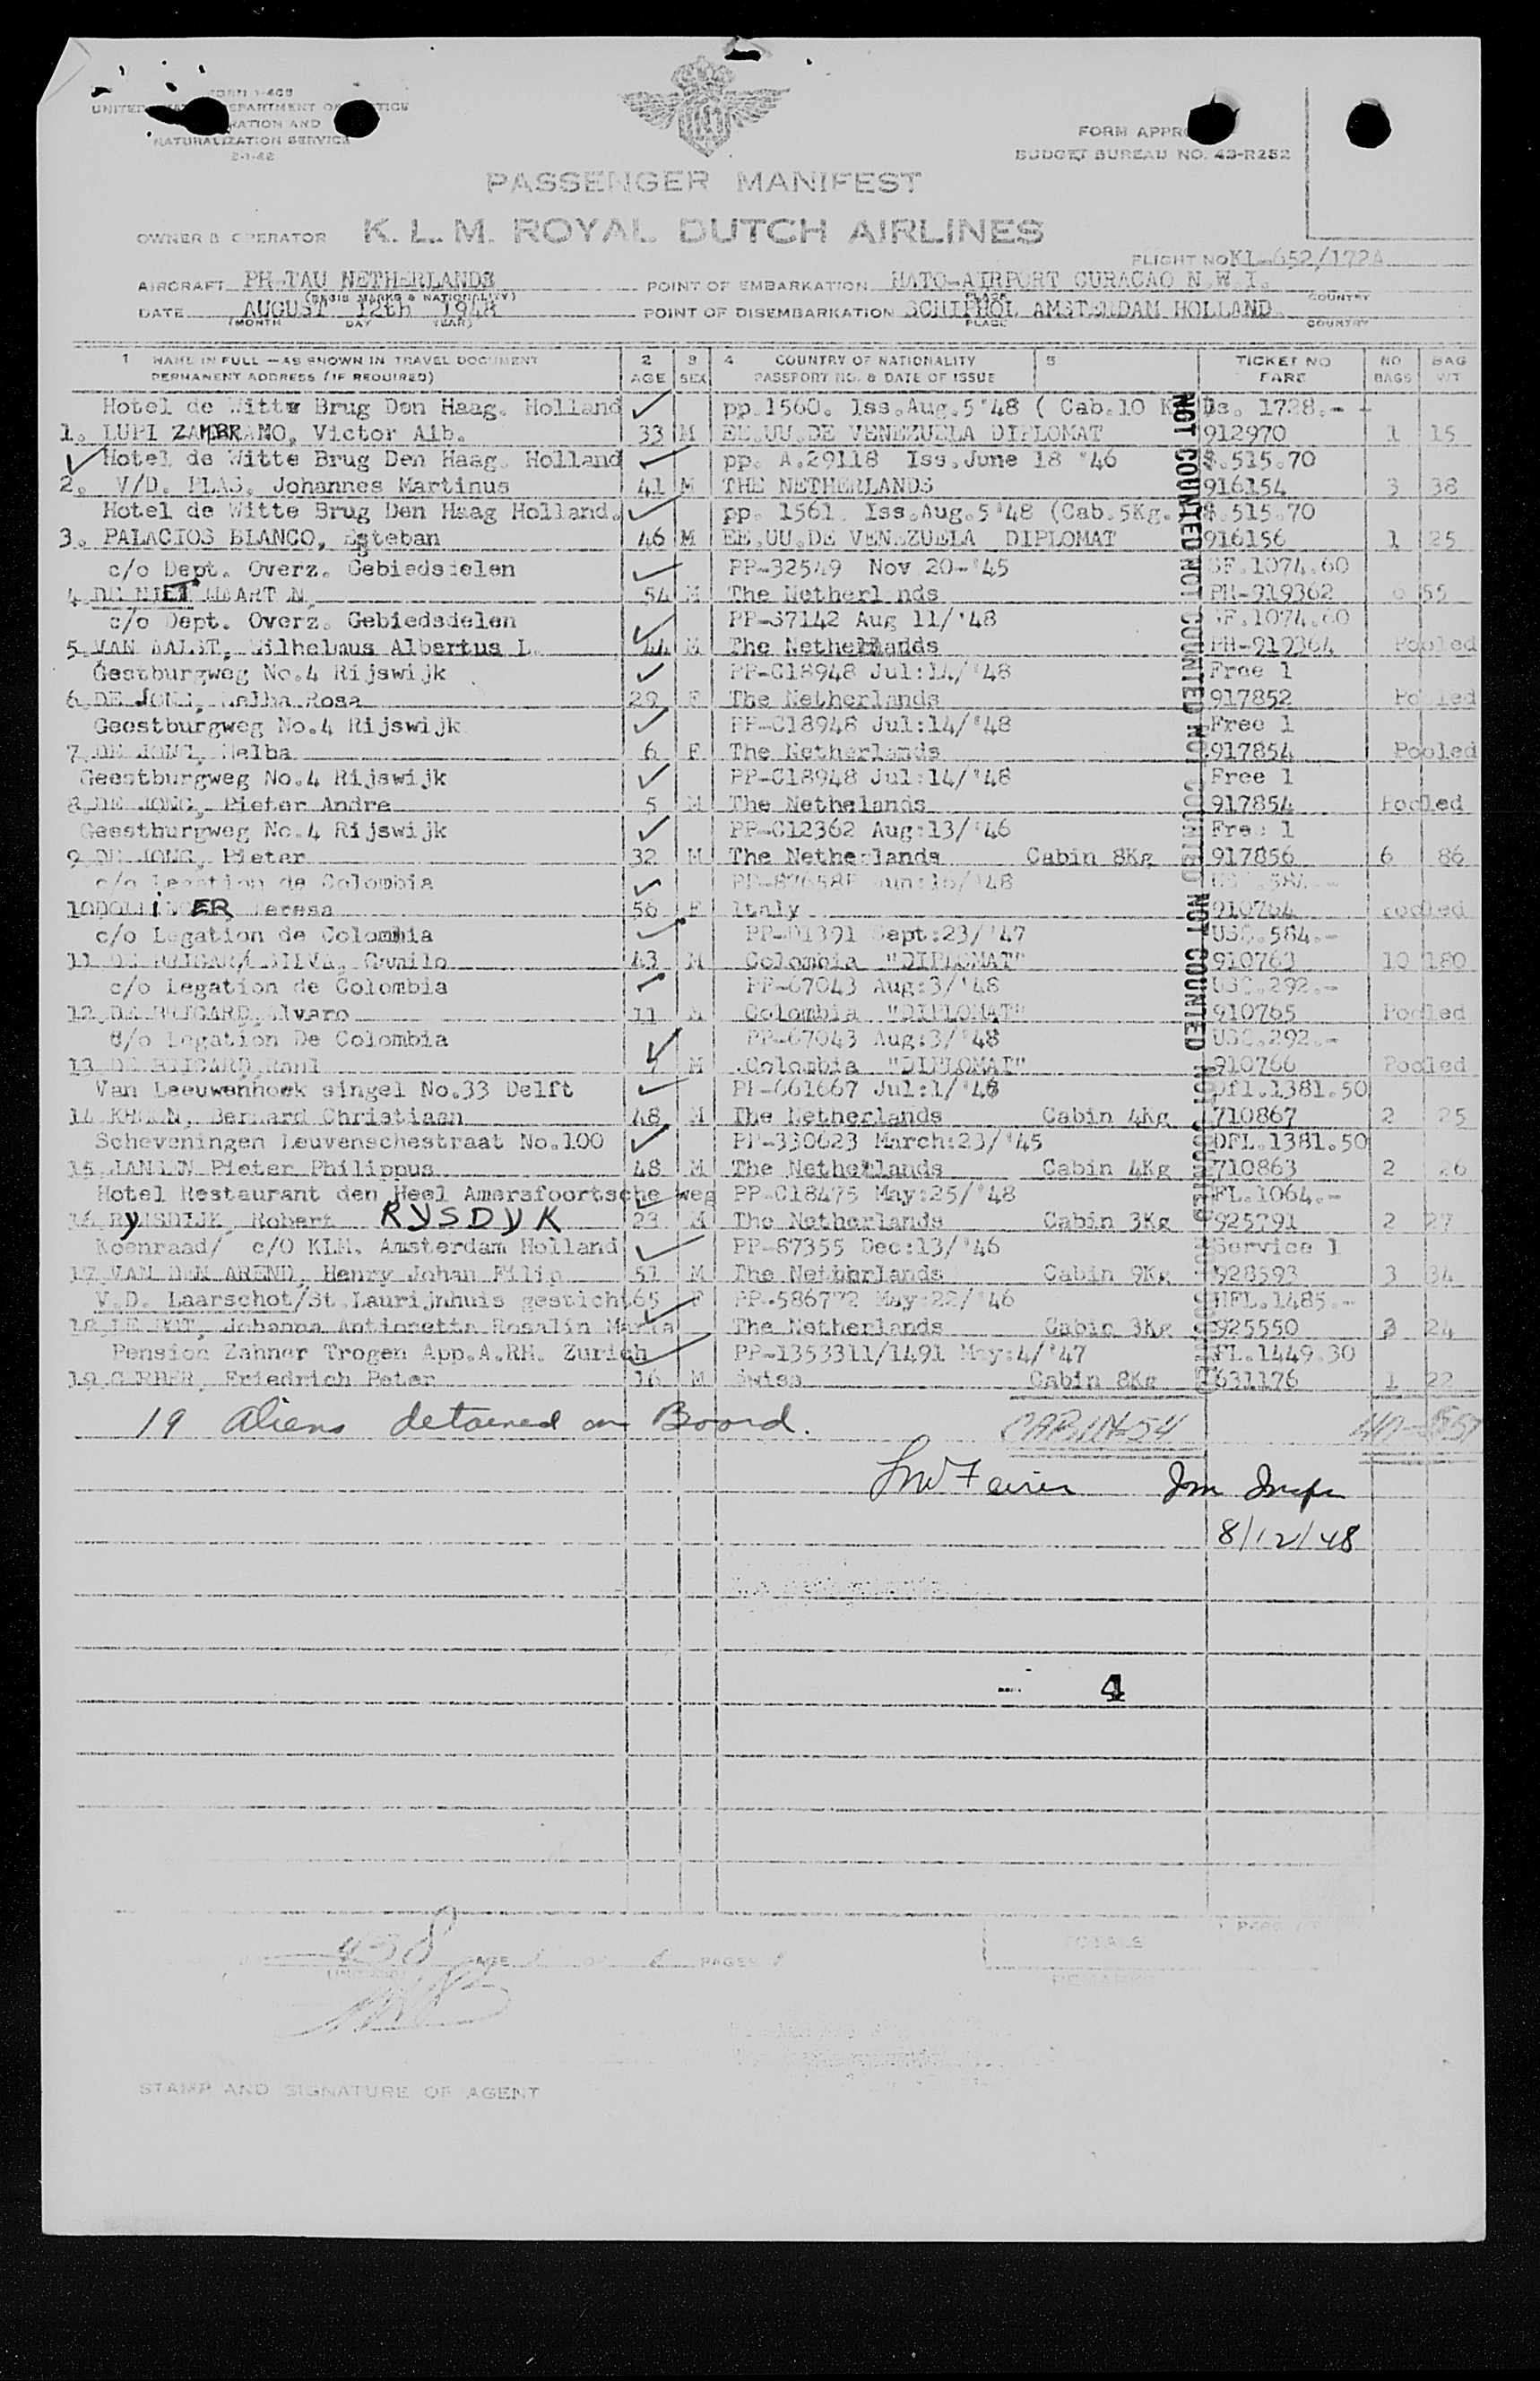 FORM I-408
UNITED DEPARTMENT OF
AND
NATURALIZATION SERVICE
2-1-42
FORM APPR
BUDGET BUREAU NO. 43-R252
PASSENGER MANIFEST
OWNER & OPERATOR K. L. M. ROYAL DUTCH AIRLINES
FLIGHT NO KL-652/172A
AIRCRAFT PH-TAU NETHERLANDS POINT OF EMBARKATION HATO-AIRPORT CURACAO N.W.I.
(REGIS MARKS & NATIONALITY) PLACE COUNTRY
DATE AUGUST 12th 1948 POINT OF DISEMBARKATION SCHIPHOL AMSTERDAM HOLLAND
(MONTH DAY YEAR) PLACE COUNTRY
1 NAME IN FULL — AS SHOWN IN TRAVEL DOCUMENT 2 3 4 COUNTRY OF NATIONALITY 5 TICKET NO NO BAG
PERMANENT ADDRESS (IF REQUIRED) AGE SEX PASSPORT NO. & DATE OF ISSUE FARE BAGS WT
Hotel de Witte Brug Den Haag. Holland pp.1560. Iss.Aug.5'48 ( Cab.10 K Bs. 1728.- -
1. LUPI ZAMBRANO, Victor Alb. 33 M EE.UU.DE VENEZUELA DIPLOMAT 912970 1 15
Hotel de Witte Brug Den Haag. Holland pp. A.29118 Iss.June 18 '46 $.515.70
2. V/D. PLAS. Johannes Martinus 41 M THE NETHERLANDS 916154 3 38
Hotel de Witte Brug Den Haag Holland. pp. 1561. Iss.Aug.5'48 (Cab.5Kg. $.515.70
3. PALACIOS BLANCO, Esteban 46 M EE.UU.DE VENEZUELA DIPLOMAT 916156 1 25
c/o Dept. Overz. Gebiedsdelen PP-32549 Nov 20-'45 SF.1074.60
4 DE NIET MAARTEN, 54 M The Netherlands PH-919362 6 55
c/o Dept. Overz. Gebiedsdelen PP-37142 Aug 11/'48 SF.1074.60
5 VAN AALST, Wilhelmus Albertus L. 44 M The Netherlands PH-919364 Pooled
Geestburgweg No.4 Rijswijk PP-C18948 Jul:14/'48 Free 1
6 DE JONG, Melba Rosa 29 F The Netherlands 917852 Pooled
Geestburgweg No.4 Rijswijk PP-C18948 Jul:14/'48 Free 1
7 DE JONG, Melba 6 F The Netherlands 917854 Pooled
Geestburgweg No.4 Rijswijk PP-C18948 Jul:14/'48 Free 1
8 DE JONG, Pieter Andre 5 M The Nethelands 917854 Pooled
Geestburgweg No.4 Rijswijk PP-C12362 Aug:13/'46 Free 1
9 DE JONG, Pieter 32 M The Netherlands Cabin 8Kg 917856 6 86
c/o Legation de Colombia
10 Teresa 56 F Italy 910764 Pooled
c/o Legation de Colombia Sept:23/'47 US$.584.-
11 DE BRIGARD SILVA, Camilo 43 M Colombia "DIPLOMAT" 910763 10 180
c/o Legation de Colombia PP-67043 Aug:3/'48 US$.292.-
12 DE BRIGARD, Alvaro 11 M Colombia "DIPLOMAT" 910765 Pooled
c/o Legation De Colombia PP-67043 Aug:3/'48 US$.292.-
13 DE BRIGARD, Raul M Colombia "DIPLOMAT" 910766 Pooled
Van Leeuwenhoek singel No.33 Delft PP-661667 Jul:1/'48 Dfl.1381.50
14 Bernard Christiaan 48 M The Netherlands Cabin 4Kg 710867 2 25
Scheveningen Leuvenschestraat No.100 PP-330623 March:23/'45 DFL.1381.50
15 JANSEN Pieter Philippus 48 M The Netherlands Cabin 4Kg 710863 2 26
Hotel Restaurant den Heel Amersfoortsche weg PP-C18475 May:25/'48 FL.1064.-
16 RYNSDIJK, Robert RYSDYK 23 M The Netherlands Cabin 3Kg 925791 2 27
Koenraad/ c/O KLM. Amsterdam Holland PP-87355 Dec:13/'46 Service 1
17 VAN DEN AREND, Henry Johan Filip 51 M The Netherlands Cabin 9Kg 928593 3 34
V.D. Laarschot/St.Laurijnhuis gesticht 65 F PP-586772 May:22/'46 HFL.1485.-
18 Johanna Antionetta Rosalin Maria The Netherlands Cabin 3Kg 925550 3 24
Pension Zahner Trogen App.A.RH. Zurich PP-1353311/1491 May:4/'47 FL.1449.30
19 GERBER, Friedrich Peter 16 M Swiss Cabin 8Kg 631176 1 22
NOT COUNTED NOT COUNTED NOT COUNTED NOT COUNTED NOT COUNTED
19 Aliens detained on Board. CABIN-54
Imm Insp
8/12/48
4
438 PAGE OF PAGES
TOTALS
REMARKS
STAMP AND SIGNATURE OF AGENT